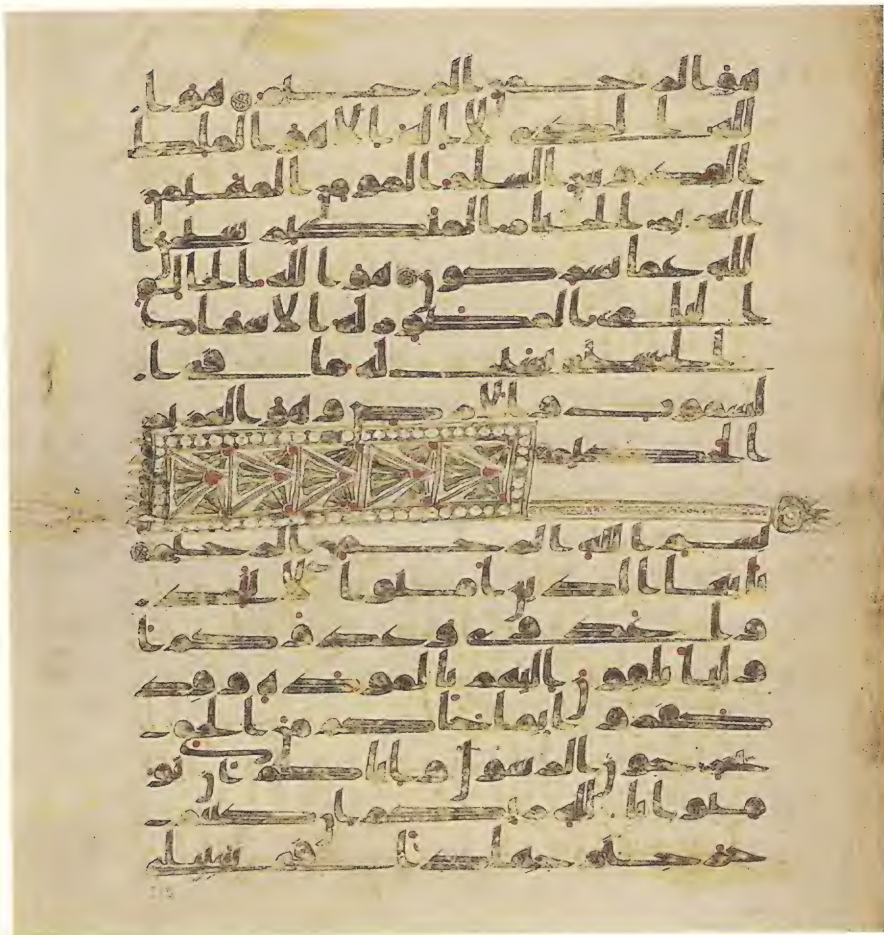 هو الرحمن الرحيم هو ا
لله الذي لا اله الا هو الملك
القدوس السلم المومن المهيمن
العزيز الجبار المتكبر سبحن
الله عما يشركون هو الله الخلق
البارئ المصور له الاسما
الحسنى يسبح له ما في ا
لسموت والارض وهو العزيز
الحكيم
بسم الله الرحمن الرحيم
يايها الذين امنوا لا تتخذ
وا عدوي وعدوكم ا
وليا تلقون اليهم بالمودة وقد
كفروا بما جاكم من الحق
يخرجون الرسول واياكم ان تو
منوا بالله ربكم ان كنتم
خرجتم جهدا في سبيلي